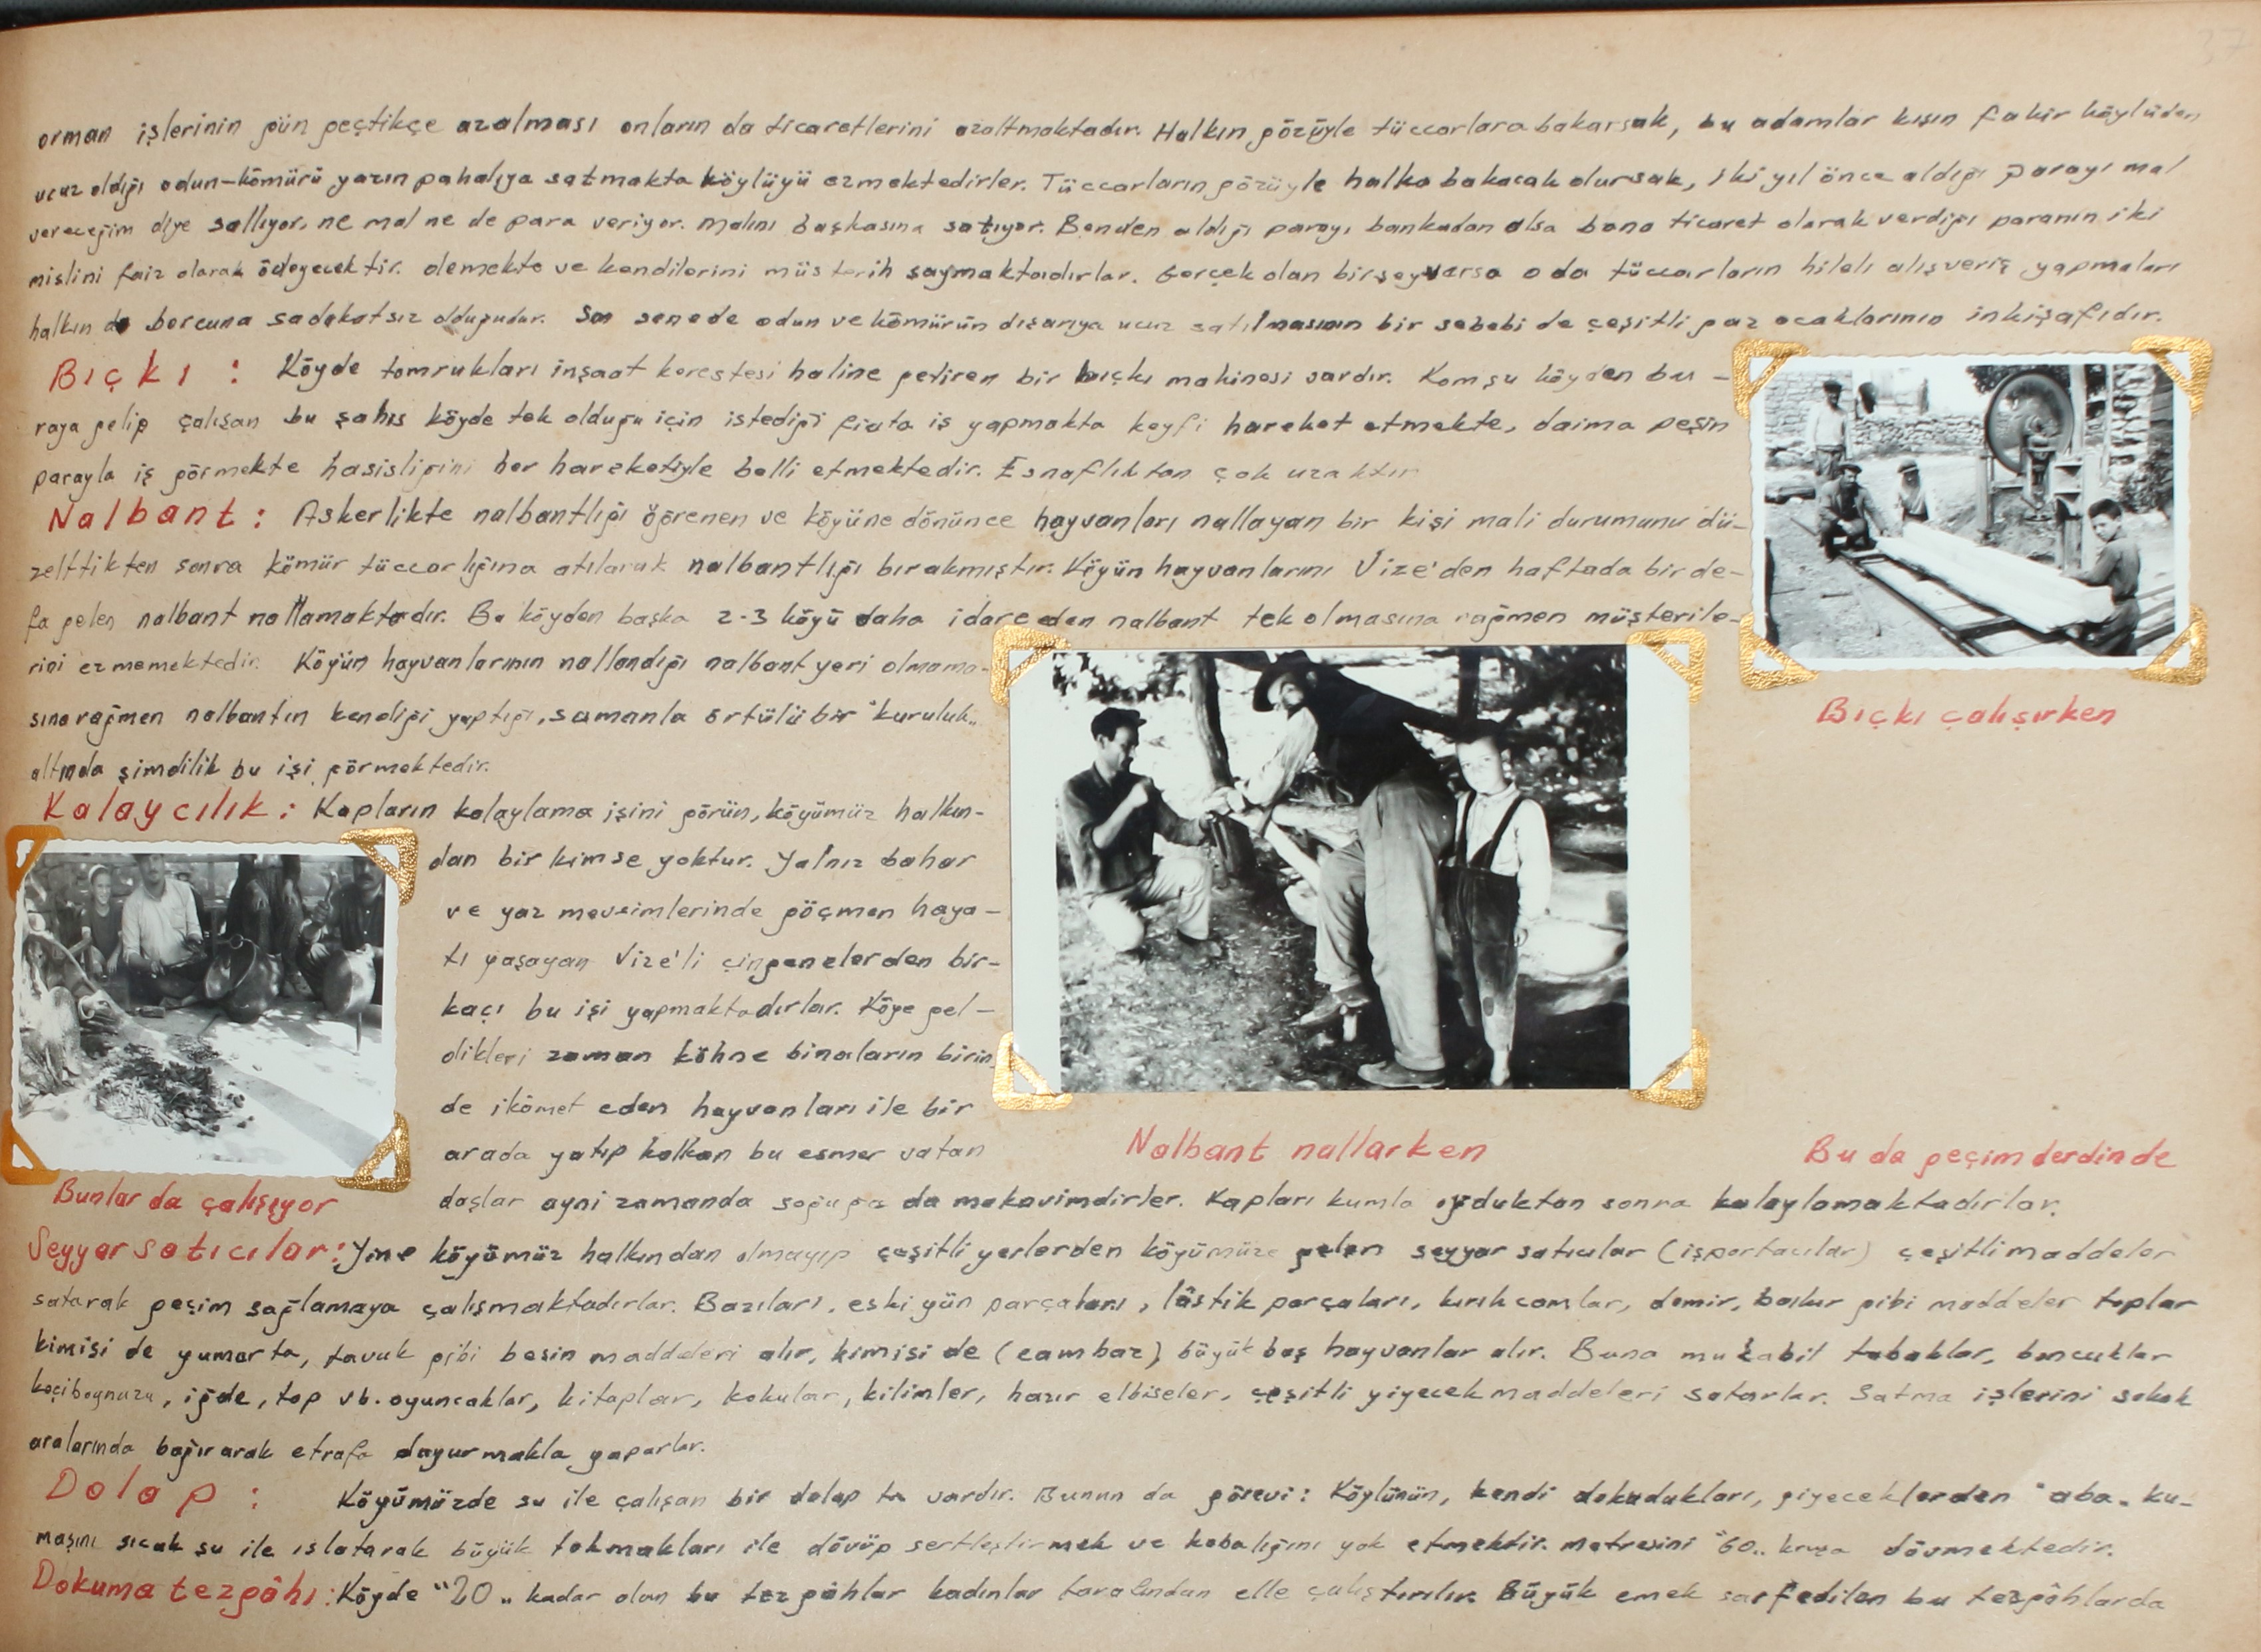 37
orman işlerinin gün geçtikçe azalması onların da ticaretlerini azaltmaktadır. Halkın gözüyle tüccarlara bakarsak, bu adamlar kışın fakir köylüden
ucuz aldığı odun-kömürü yazın pahalıya satmakta köylüyü ezmektedirler. Tüccarların gözüyle halka bakacak olursak, iki yıl önce aldığı parayı mal
vereceğim diye sallıyor, ne mal ne de para veriyor. Malını başkasına satıyor. Benden aldığı parayı bankadan alsa bana ticaret olarak verdiği paranın iki
mislini faiz olarak ödeyecektir. demekte ve kendilerini müsterih saymaktadırlar. Gerçek olan birşey varsa o da tüccarların hileli alışveriş yapmaları
halkın da borcuna sadakatsız olduğudur. Son senede odun ve kömürün dışarıya ucuz satılmasının bir sebebi de çeşitli gaz ocaklarının inkişafıdır.
Bıçkı : Köyde tomrukları inşaat kerestesi haline getiren bir bıçkı makinesi vardır. Komşu köyden bu-
raya gelip çalışan bu şahıs köyde tek olduğu için istediği fiata iş yapmakta keyfi hareket etmekte, daima peşin
parayla iş görmekte hasisliğini her hareketiyle belli etmektedir. Esnaflıktan çok uzaktır
Nalbant : Askerlikte nalbantlığı öğrenen ve köyüne dönünce hayvanları nallayan bir kişi mali durumunu dü-
zelttikten sonra kömür tüccarlığına atılarak nalbantlığı bırakmıştır. Köyün hayvanlarını Vize'den haftada bir de-
fa gelen nalbant nallamaktadır. Bu köyden başka 2-3 köyü daha idare eden nalbant tek olmasına rağmen müşterile-
rini ezmemektedir. Köyün hayvanlarının nallandığı nalbant yeri olmama-
sına rağmen nalbantın kendiği yaptığı, samanla örtülü bir "kuruluk"
altında şimdilik bu işi görmektedir.
Bıçkı çalışırken
Kalaycılık : Kapların kalaylama işini görün, köyümüz halkın-
dan bir kimse yoktur. Yalnız bahar
ve yaz mevsimlerinde göçmen haya-
tı yaşayan Vize'li çingenelerden bir-
kaçı bu işi yapmaktadırlar. Köye gel-
dikleri zaman köhne binaların birin
de ikâmet eden hayvanları ile bir
arada yatıp kalkan bu esmer vatan
Nalbant nallarken
Bu da geçim derdinde
Bunlar da çalışıyor
daşlar ayni zamanda soğuğa da mukavimdirler. Kapları kumla oyduktan sonra kalaylamaktadırlar.
Seyyar satıcılar : Yine köyümüz halkından olmayıp çeşitli yerlerden köyümüze gelen seyyar satıcılar (işportacılar) çeşitli maddeler
satarak geçim sağlamaya çalışmaktadırlar. Bazıları, eski yün parçaları, lâstik parçaları, kırık camlar, demir, bakır gibi maddeler toplar
kimisi de yumurta, tavuk gibi besin maddeleri alır, kimisi de (cambaz) büyük baş hayvanlar alır. Buna mukabil tabaklar, boncuklar
keçiboynuzu, iğde, top vb. oyuncaklar, kitaplar, kokular, kilimler, hazır elbiseler, çeşitli yiyecek maddeleri satarlar. Satma işlerini sokak
aralarında bağırarak etrafa duyurmakla yaparlar.
Dolap : Köyümüzde su ile çalışan bir dolap ta vardır. Bunun da görevi : Köylünün, kendi dokudukları, giyeceklerden "aba" ku-
maşını sıcak su ile ıslatarak büyük tokmakları ile dövüp sertleştirmek ve kabalığını yok etmektir. Metresini "60" kuruşa dövmektedir.
Dokuma tezgâhı : Köyde "20" kadar olan bu tezgâhlar kadınlar tarafından elle çalıştırılır. Büyük emek sarfedilen bu tezgâhlarda